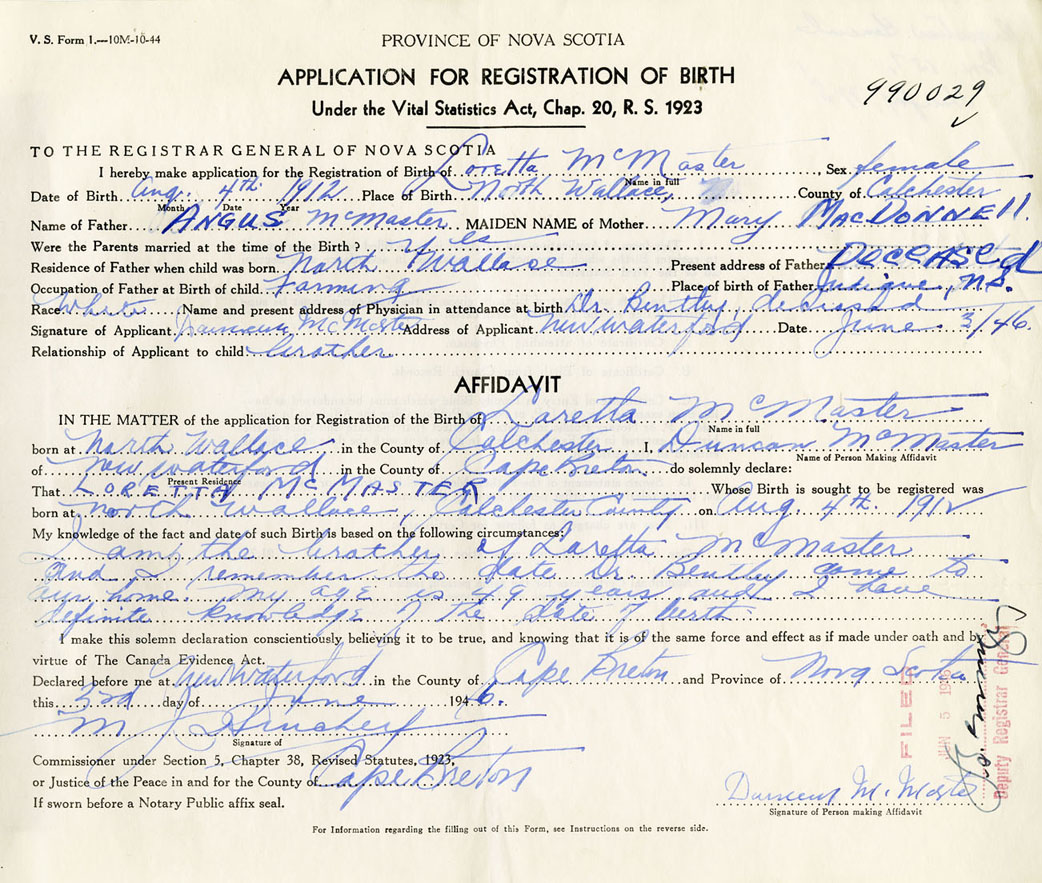 V. S. Form 1.—10M-10-44
PROVINCE OF NOVA SCOTIA
APPLICATION FOR REGISTRATION OF BIRTH
Under the Vital Statistics Act, Chap. 20, R. S. 1923
990029
TO THE REGISTRAR GENERAL OF NOVA SCOTIA
I hereby make application for the Registration of Birth of Loretta McMaster, Sex female
Name in full
Date of Birth Aug. 4th 1912 Place of Birth North Wallace, County of Colchester
Month Date Year
Name of Father ANGUS McMaster MAIDEN NAME of Mother Mary MacDONNEll.
Were the Parents married at the time of the Birth? Yes
Residence of Father when child was born North Wallace Present address of Father DECEASEd
Occupation of Father at Birth of child Farming Place of birth of Father Judique, N.S.
Race White Name and present address of Physician in attendance at birth Dr. Bentley, deceased
Signature of Applicant Duncan McMaster Address of Applicant New Waterford Date June 3/46.
Relationship of Applicant to child Brother.
AFFIDAVIT
IN THE MATTER of the application for Registration of the Birth of Loretta McMaster
Name in full
born at North Wallace in the County of Colchester I, Duncan McMaster
Name of Person Making Affidavit
of New Waterford in the County of Cape Breton do solemnly declare:
Present Residence
That LORETTA McMASTER Whose Birth is sought to be registered was
born at North Wallace, Colchester County on Aug. 4th. 1912
My knowledge of the fact and date of such Birth is based on the following circumstances:
I am the brother of Loretta McMaster
and I remember the date Dr. Bentley came to
our home. My age is 49 years and I have
definite knowledge of the date of birth.
I make this solemn declaration conscientiously, believing it to be true, and knowing that it is of the same force and effect as if made under oath and by
virtue of The Canada Evidence Act.
Declared before me at New Waterford in the County of Cape Breton and Province of Nova Scotia
this 3rd day of June 1946.
M J Hinchey
Signature of
Commissioner under Section 5, Chapter 38, Revised Statutes, 1923,
or Justice of the Peace in and for the County of Cape Breton
If sworn before a Notary Public affix seal.
Duncan McMaster
Signature of Person making Affidavit
FILED
JUN 5 1946
Deputy Registrar General
For Information regarding the filling out of this Form, see Instructions on the reverse side.